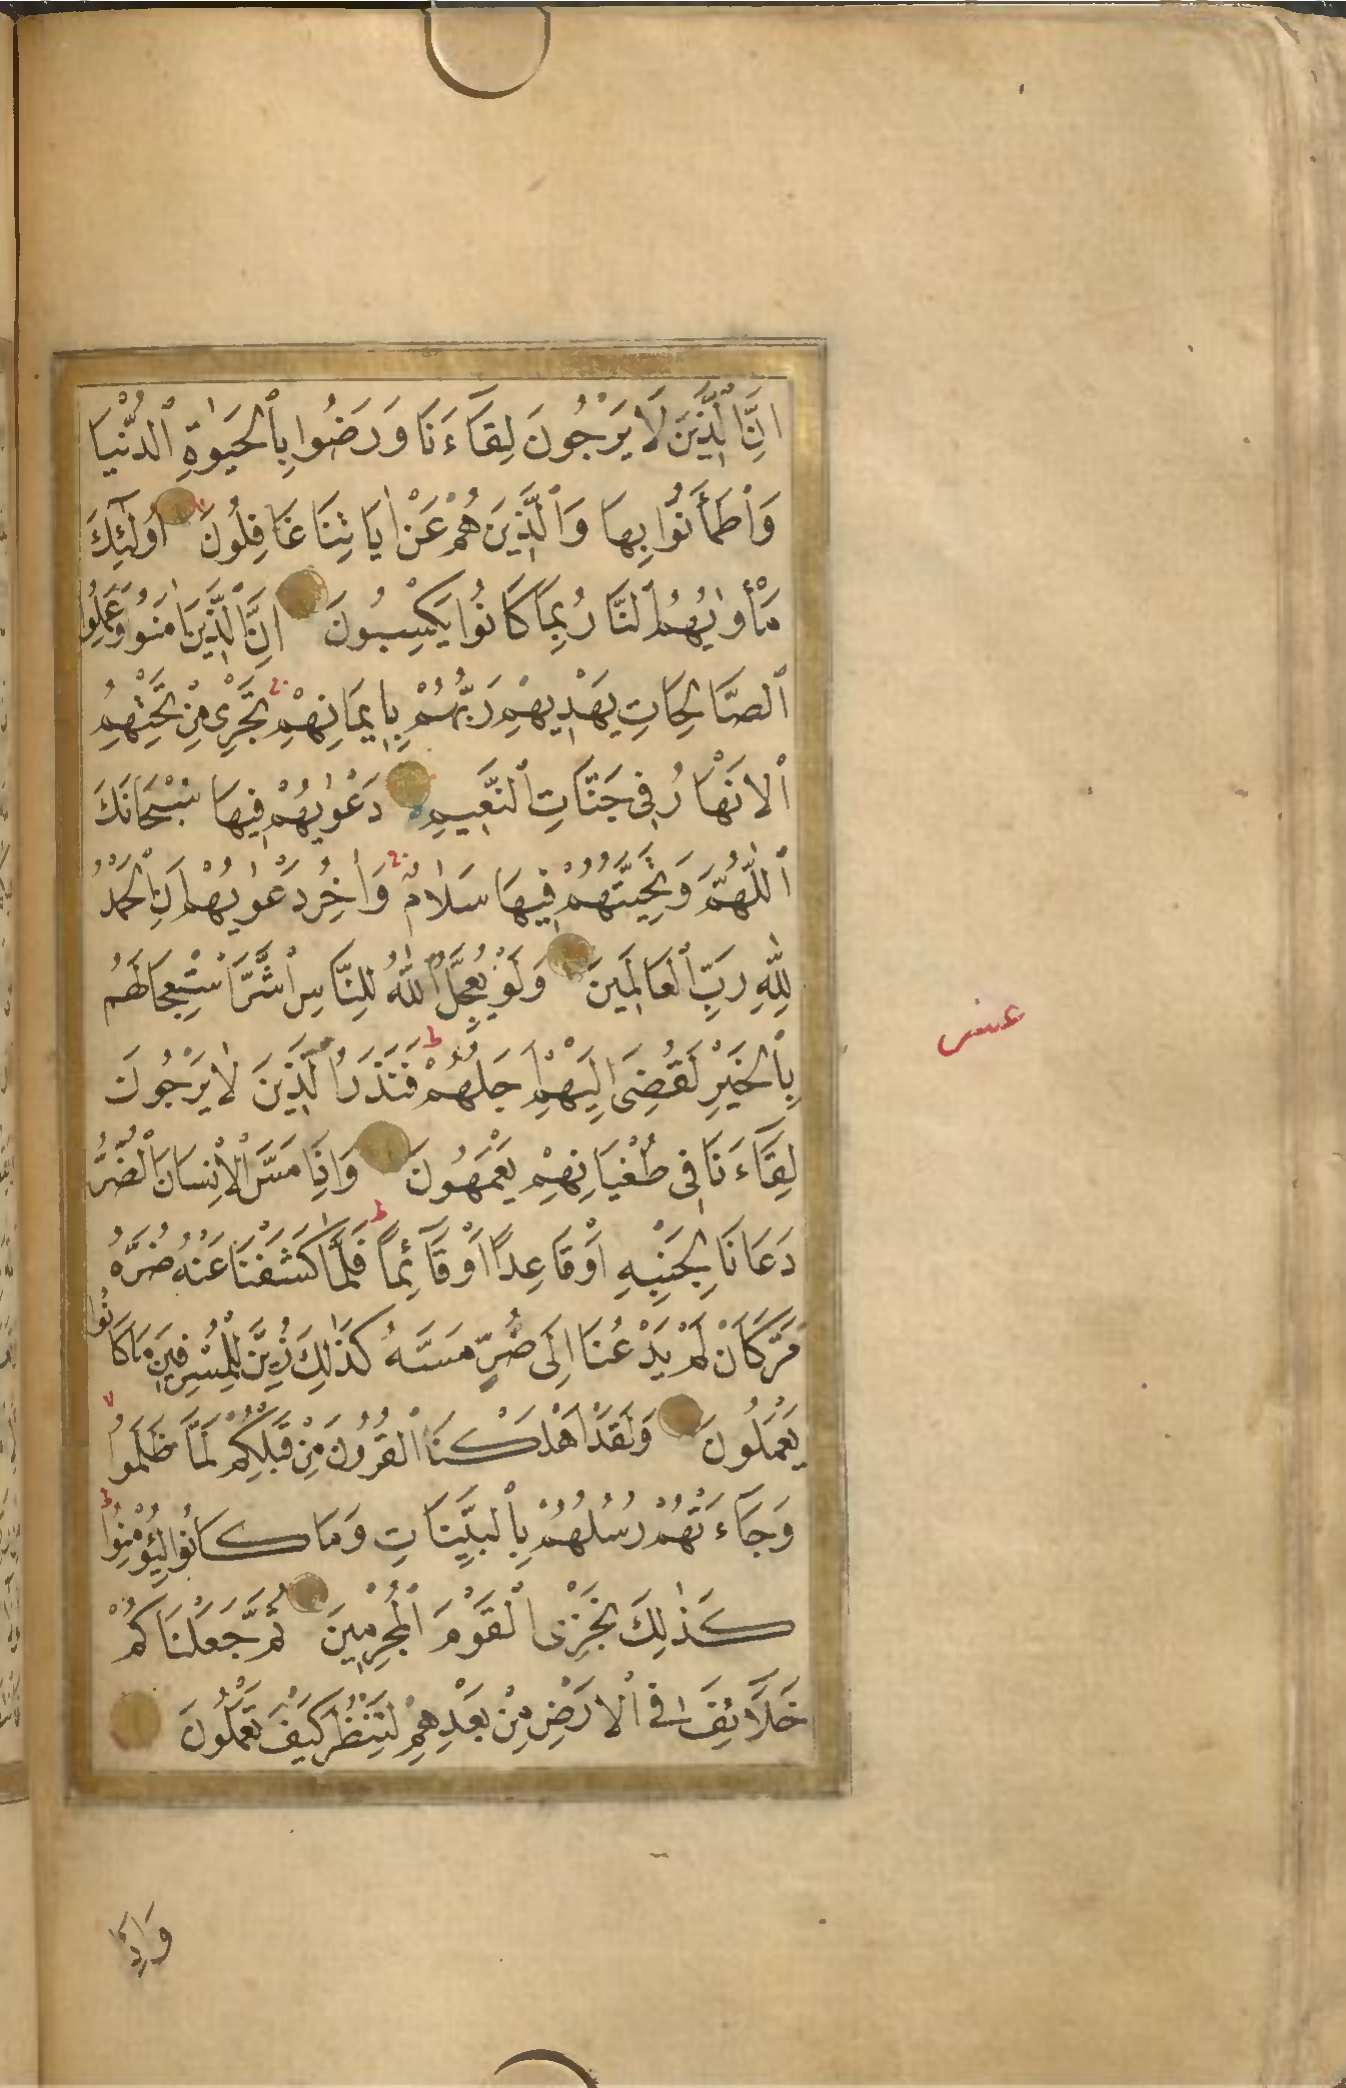 اِنَّ الَّذِينَ لَا يَرْجُونَ لِقَاءَنَا وَرَضُوا بِالْحَيٰوةِ الدُّنْيَا
وَاطْمَأَنُّوا بِهَا وَالَّذِينَ هُمْ عَنْ اٰيَاتِنَا غَافِلُونَ اُولٰٓئِكَ
مَأْوٰيهُمُ النَّارُ بِمَا كَانُوا يَكْسِبُونَ اِنَّ الَّذِينَ اٰمَنُوا وَعَمِلُوا
الصَّالِحَاتِ يَهْدِيهِمْ رَبُّهُمْ بِاِيمَانِهِمْ تَجْرِى مِنْ تَحْتِهِمُ
الْاَنْهَارُ فِى جَنَّاتِ النَّعِيمِ دَعْوٰيهُمْ فِيهَا سُبْحَانَكَ
اللّٰهُمَّ وَتَحِيَّتُهُمْ فِيهَا سَلَامٌ وَاٰخِرُ دَعْوٰيهُمْ اَنِ الْحَمْدُ
لِلّٰهِ رَبِّ الْعَالَمِينَ وَلَوْ يُعَجِّلُ اللّٰهُ لِلنَّاسِ الشَّرَّ اسْتِعْجَالَهُمْ
بِالْخَيْرِ لَقُضِىَ اِلَيْهِمْ اَجَلُهُمْ فَنَذَرُ الَّذِينَ لَا يَرْجُونَ
لِقَاءَنَا فِى طُغْيَانِهِمْ يَعْمَهُونَ وَاِذَا مَسَّ الْاِنْسَانَ الضُّرُّ
دَعَانَا لِجَنْبِهِ اَوْ قَاعِدًا اَوْ قَائِمًا فَلَمَّا كَشَفْنَا عَنْهُ ضُرَّهُ
مَرَّ كَاَنْ لَمْ يَدْعُنَا اِلَى ضُرٍّ مَسَّهُ كَذٰلِكَ زُيِّنَ لِلْمُسْرِفِينَ مَا كَانُوا
يَعْمَلُونَ وَلَقَدْ اَهْلَكْنَا الْقُرُونَ مِنْ قَبْلِكُمْ لَمَّا ظَلَمُوا
وَجَاءَتْهُمْ رُسُلُهُمْ بِالْبَيِّنَاتِ وَمَا كَانُوا لِيُؤْمِنُوا
كَذٰلِكَ نَجْزِى الْقَوْمَ الْمُجْرِمِينَ ثُمَّ جَعَلْنَاكُمْ
خَلَائِفَ فِى الْاَرْضِ مِنْ بَعْدِهِمْ لِنَنْظُرَ كَيْفَ تَعْمَلُونَ
عشر
وَاِذَا